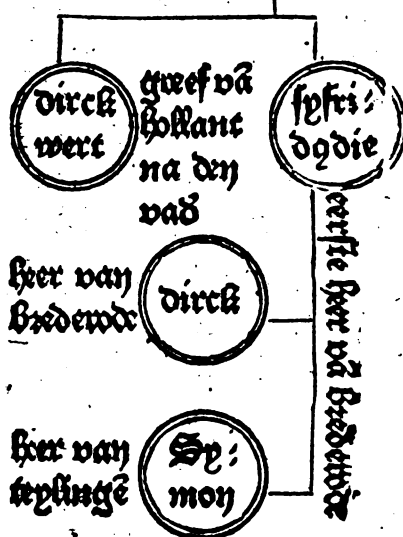 dirck
wert
greef vā
hollant
na den
vad̄
syfri⸗
dꝰ die
eerste heer vā brederode
heer van
brederode
dirck
heer van
teylingē
Sy⸗
mon